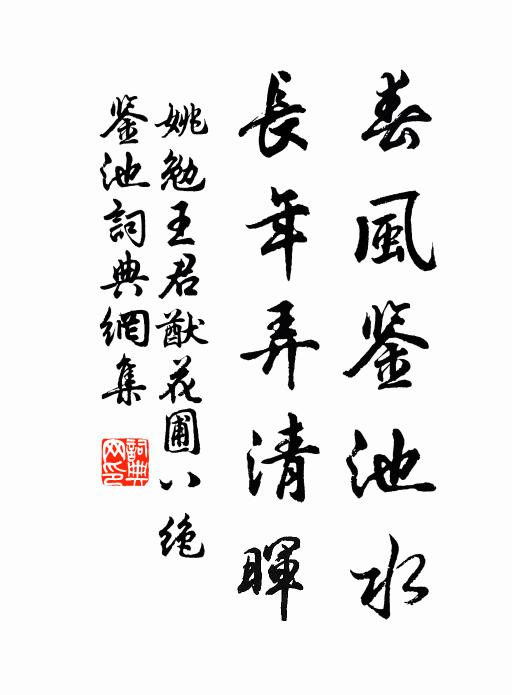 春風鉴池水
長年弄清暉
姚勉王君猷花圃八绝
鉴池詞典網集
詞典網印